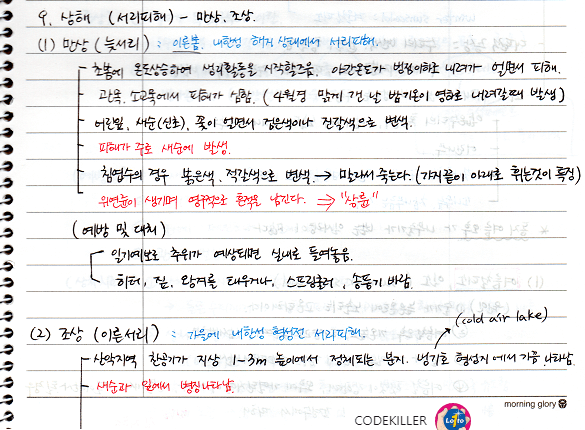 9. 상해 (서리피해) - 만상, 조상.
(1) 만상 (늦서리) : 이른봄, 내한성 해제 상태에서 서리피해.
초봄에 온도상승하여 생리활동을 시작할즈음. 야간온도가 빙점이하로 내려가 얼면서 피해.
관목, 소교목에서 피해가 심함. (4월경 맑게 갠 날 밤기온이 영하로 내려갈때 발생)
어린잎, 새순(신초), 꽃이 얼면서 검은색이나 진갈색으로 변색.
피해가 주로 새순에 발생.
침엽수의 경우 붉은색, 적갈색으로 변색. → 말라서 죽는다. (가지끝이 아래로 휘는것이 특징)
위연륜이 생기며 영구적으로 흔적을 남긴다. ⇒ "상륜"
(예방 및 대처)
일기예보로 추위가 예상되면 실내로 들여놓음.
히터, 짚, 왕겨를 태우거나, 스프링쿨러, 송풍기 바람.
(cold air lake)
(2) 조상 (이른서리) : 가을에 내한성 형성전 서리피해.
산악지역 찬공기가 지상 1~3m 높이에서 정체되는 분지. 냉기호 형성지에서 가끔 나타남.
새순과 잎에서 병징나타남.
morning glory
CODEKILLER
Lotto